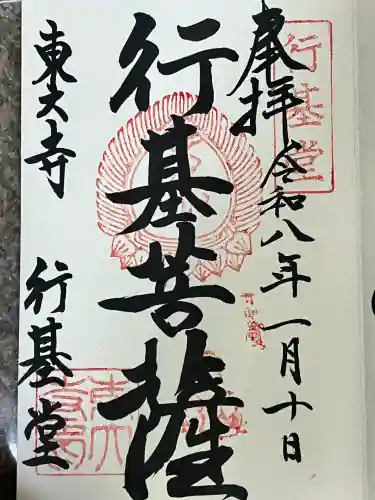 行基堂
奉拝 令和八年一月十日
行基菩薩
東大寺 行基堂